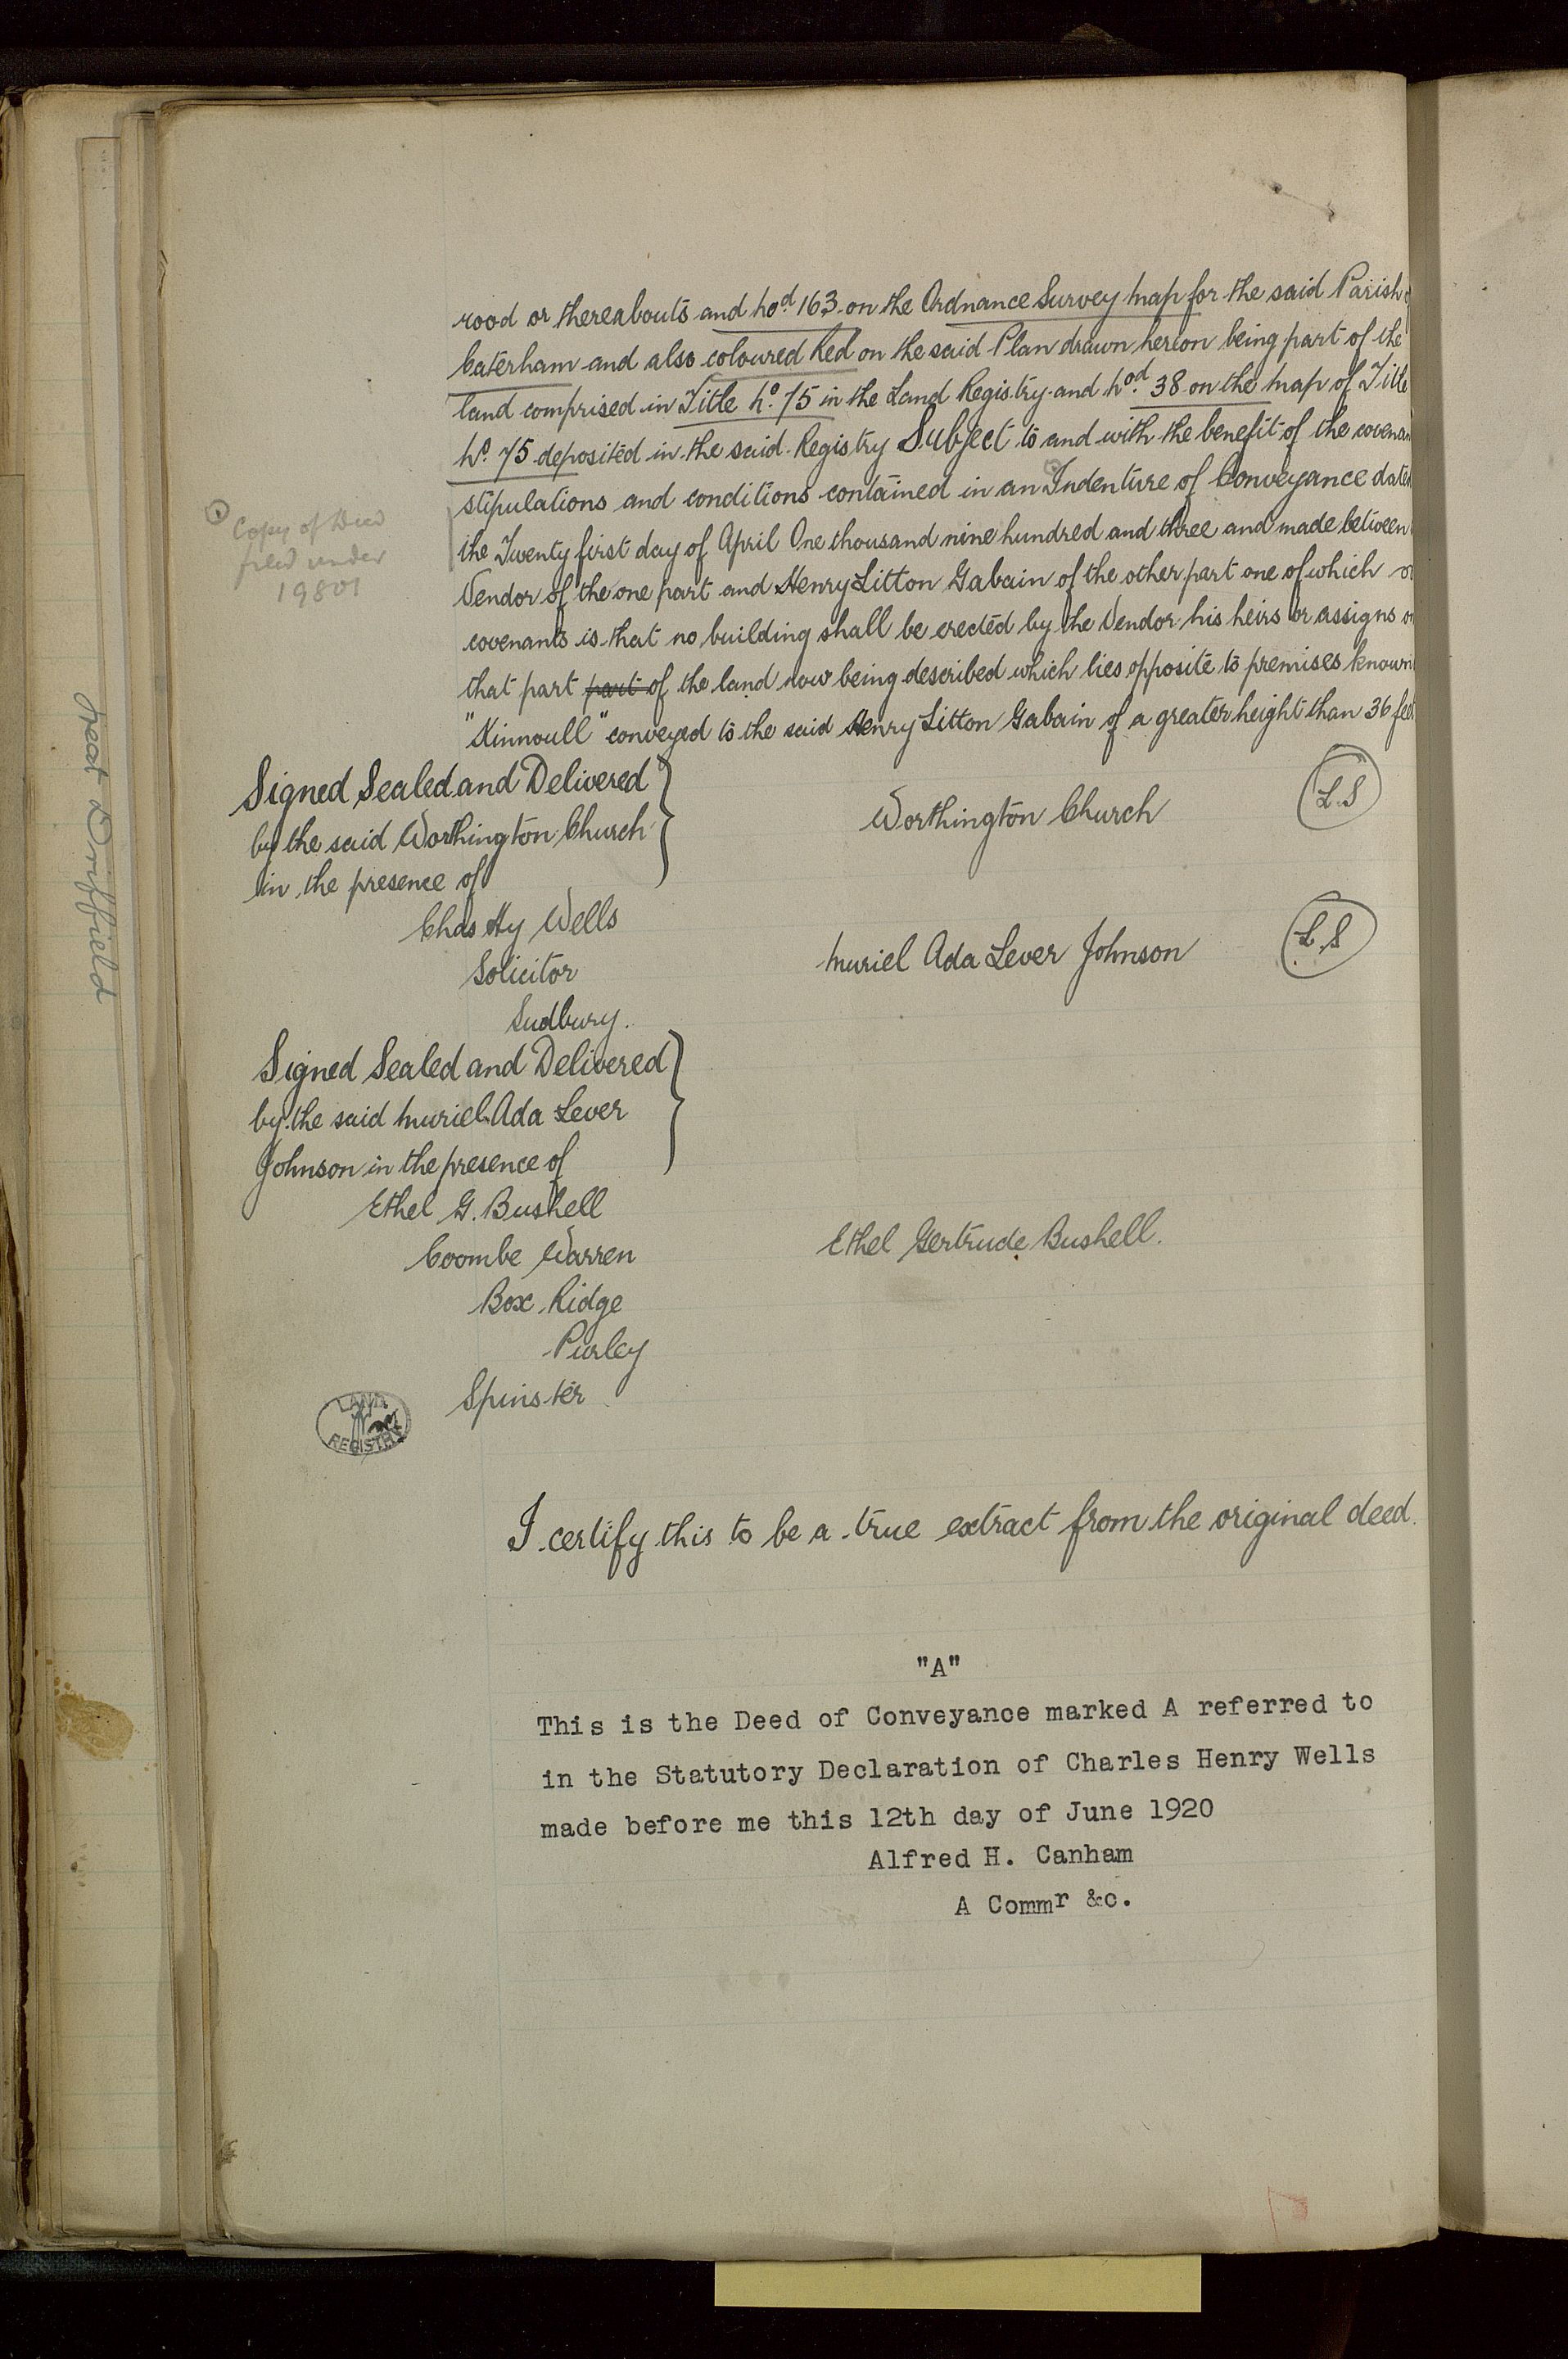 rood or thereabouts and No.d 163 on the Ordnance Survey Map for the said Parish
Caterham and also coloured Red on the said Plan drawn hereon being part of the
land comprised in Title No. 75 in the Land Registry and No.d 38 on the Map of Title
No. 75 deposited in the said Registry Subject to and with the benefit of the
stipulations and conditions contained in an Indenture of Conveyance dated
the Twenty first day of April One thousand nine hundred and three and made between
Vendor of the one part and Henry Litton Gabain of the other part one of which
covenants is that no building shall be erected by the Vendor his heirs or assigns
that part part of the land now being described which lies opposite to premises known
"Kinnoull" conveyed to the said Henry Litton Gabain of a greater height than 36 feet
Copy of Deed
filed under
19801
Signed Sealed and Delivered
by the said Worthington Church
in the presence of
Worthington Church
L.S
Chas Hy Wells
Solicitor
Sudbury.
Muriel Ada Lever Johnson
L.S
Signed Sealed and Delivered
by the said Muriel Ada Lever
Johnson in the presence of
Ethel G. Bushell
Coombe Warren
Box Ridge
Purley
Spinster
Ethel Gertrude Bushell.
LAND
REGISTRY
I certify this to be a true extract from the original deed.
"A"
This is the Deed of Conveyance marked A referred to
in the Statutory Declaration of Charles Henry Wells
made before me this 12th day of June 1920
Alfred H. Canham
A Commr &c.
Driffield